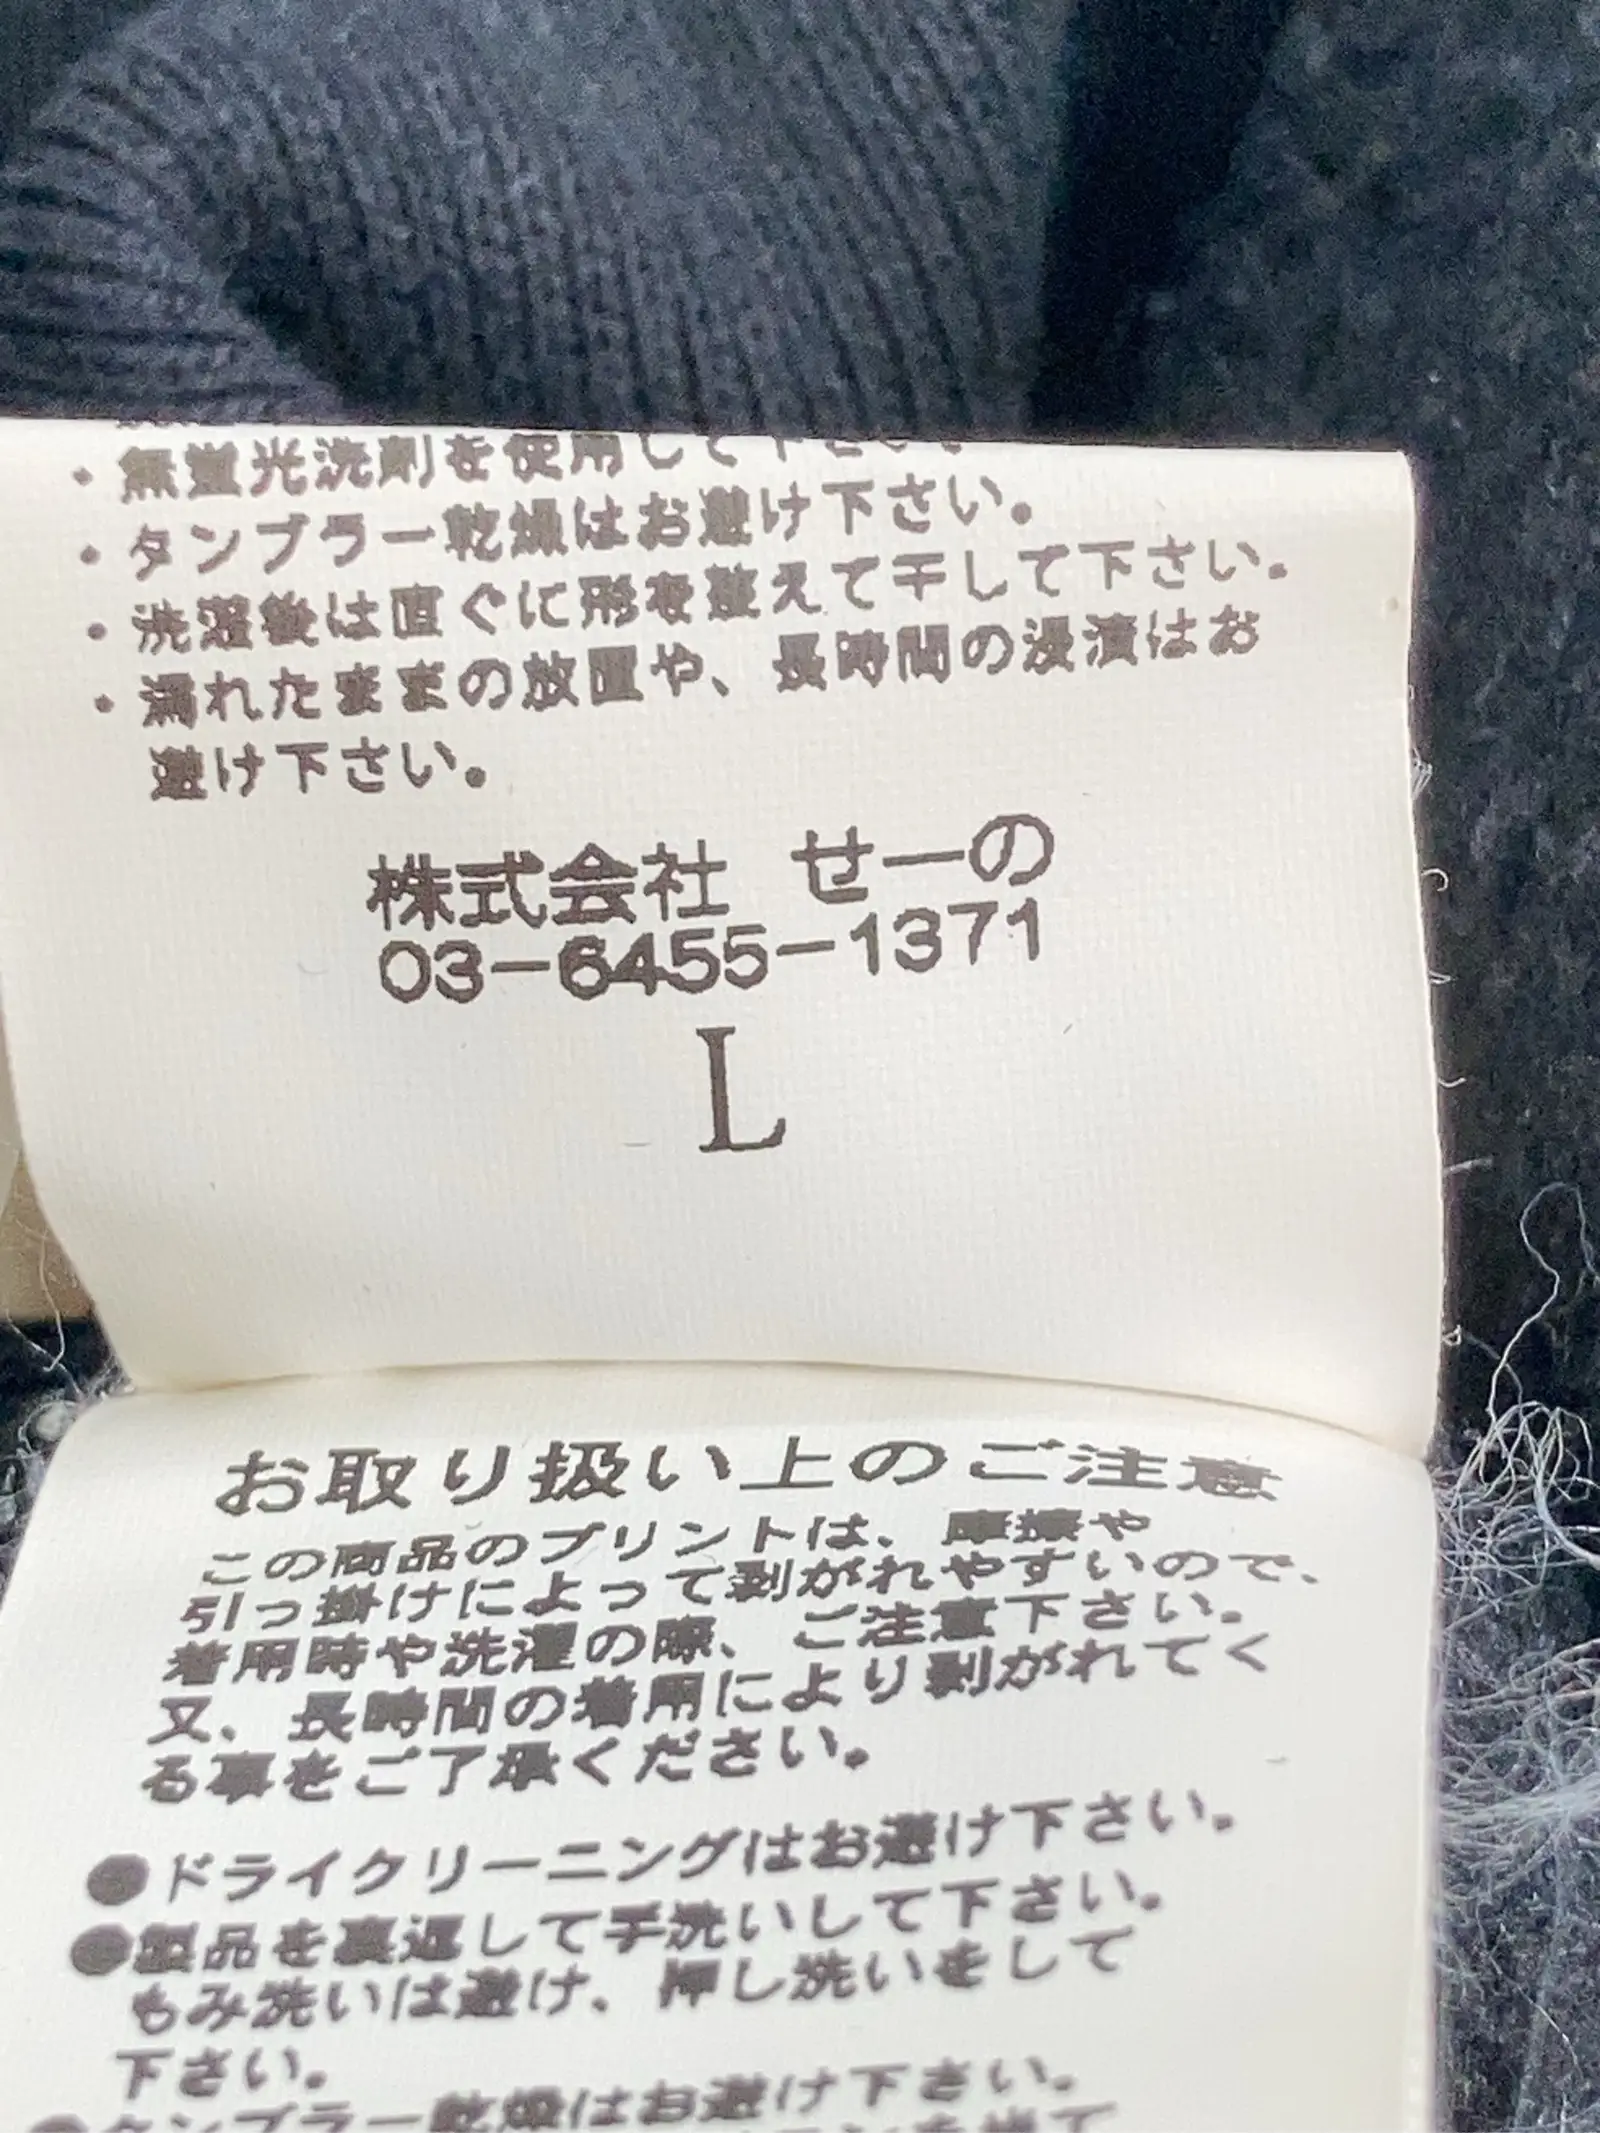 ・無蛍光洗剤を使用して下さい。
・タンブラー乾燥はお避け下さい。
・洗濯後は直ぐに形を整えて干して下さい。
・濡れたままの放置や、長時間の浸漬はお
避け下さい。
株式会社 せーの
03-6455-1371
L
お取り扱い上のご注意
この商品のプリントは、摩擦や
引っ掛けによって剥がれやすいので、
着用時や洗濯の際、ご注意下さい。
又、長時間の着用により剥がれてく
る事をご了承ください。
●ドライクリーニングはお避け下さい。
●製品を裏返して手洗いして下さい。
もみ洗いは避け、押し洗いをして
下さい。
●タンブラー乾燥はお避け下さい。